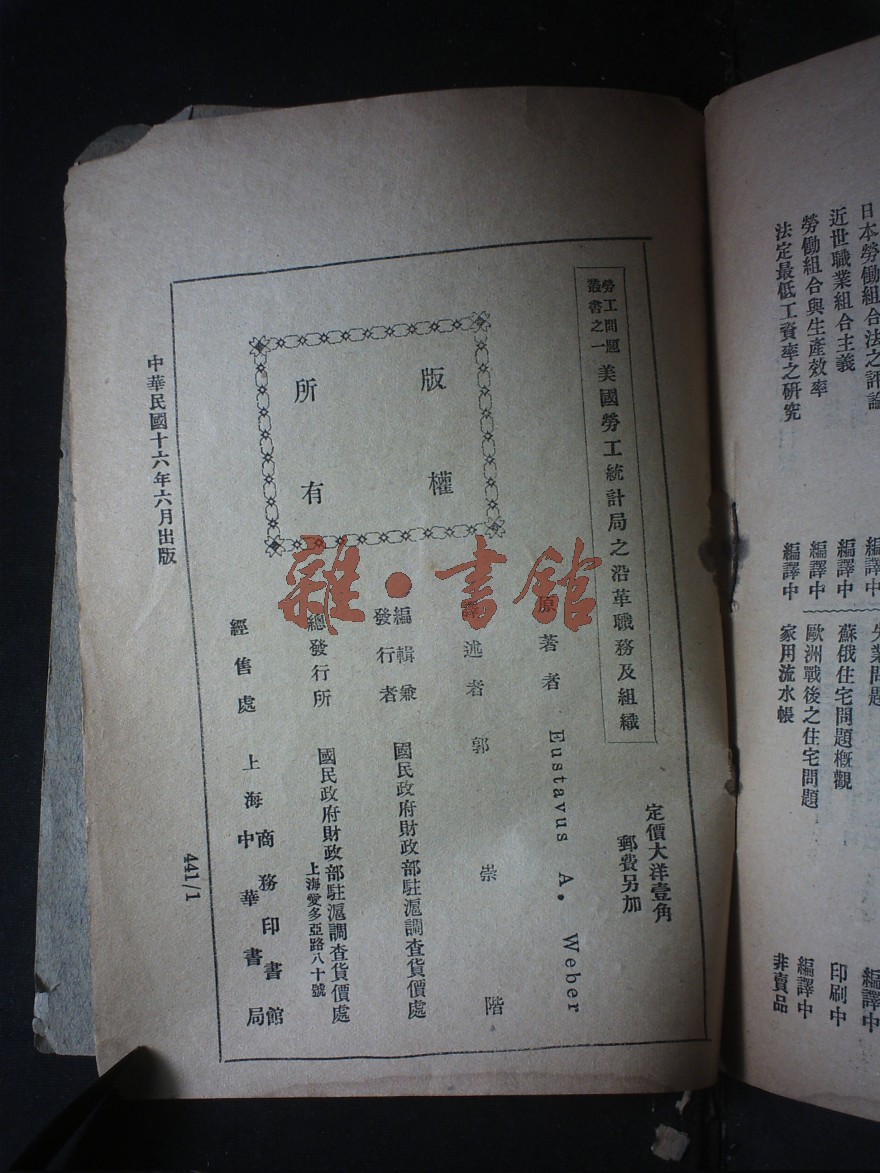 日本勞働組合法之評論 編譯中
近世職業組合主義 編譯中
勞働組合與生產效率 編譯中
法定最低工資率之研究 編譯中
失業問題 編譯中
蘇俄住宅問題概觀 印刷中
歐洲戰後之住宅問題 編譯中
家用流水帳 非賣品
定價大洋壹角
郵費另加
勞工問題
叢書之一
美國勞工統計局之沿革職務及組織
原著者 Eustavus A. Weber
譯述者 郭崇階
編輯兼
發行者
國民政府財政部駐滬調查貨價處
總發行所
國民政府財政部駐滬調查貨價處
上海愛多亞路八十號
經售處
上海
商務印書館
中華書局
版權
所有
中華民國十六年六月出版
441/1
雜·書館